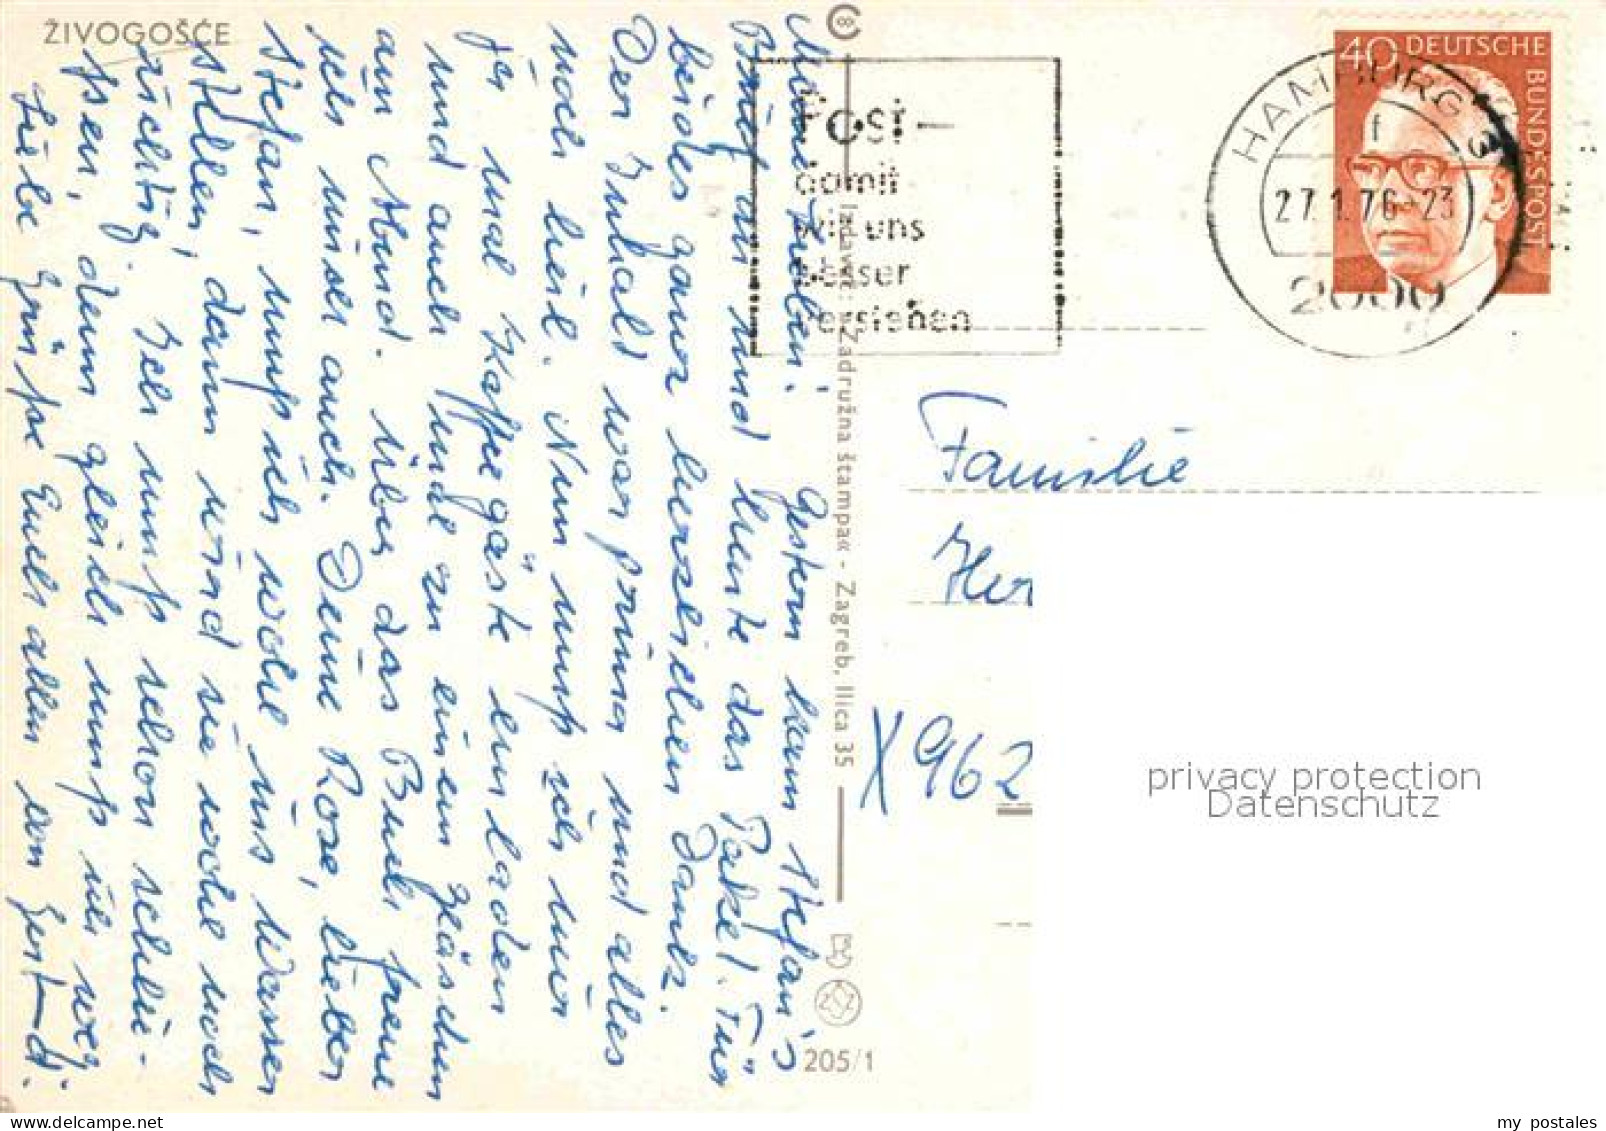 ŽIVOGOŠĆE
Meine Lieben! Gestern kam Stefan's
Brief an und heute das Paket. Für
beides ganz herzlichen Dank.
Der Inhalt war prima und alles
noch heil. Nun muß ich nur
jer mal Kaffeegäste einladen
und auch mal zu einem Gläschen
am Abend. Über das Buch freue
ich mich auch. Deine Rose, lieber
Stefan, muß ich wohl ins Wasser
stellen, dann wird sie wohl noch
richtig. Ich muß schon schlie-
ßen, denn gleich muß ich weg.
Liebe Grüße Euch allen von
Izdavač: Zadružna štampa - Zagreb, Ilica 35
205/1
Post-
damit
wir uns
besser
verstehen
HAMBURG
f
27.1.76-23
2000
40 DEUTSCHE BUNDESPOST
Familie
Her
X962
privacy protection
Datenschutz
my postales